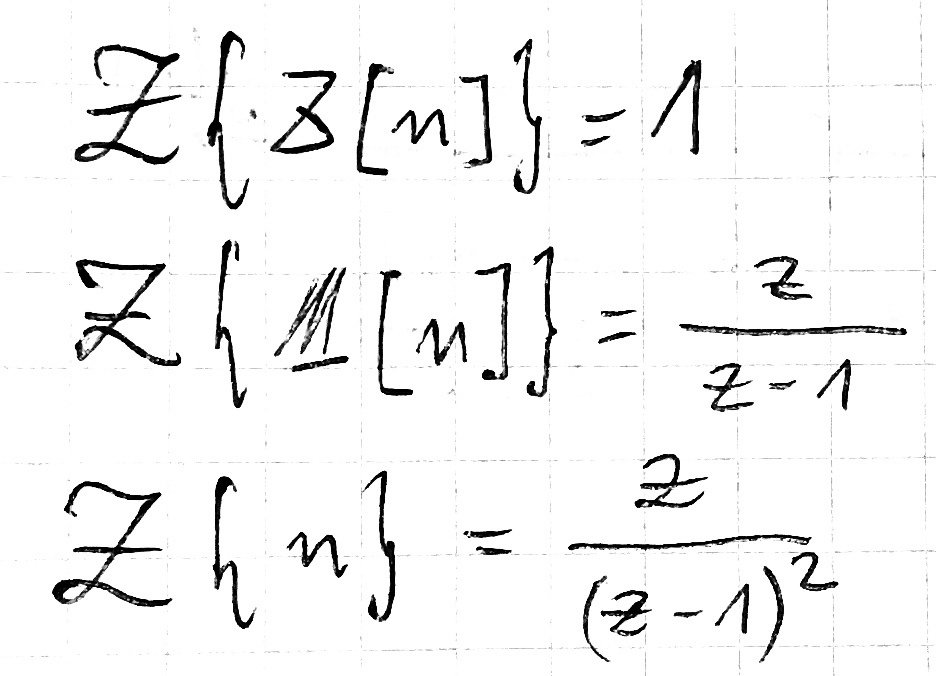 Z{δ[n]} = 1
Z{𝟙[n]} = z/(z-1)
Z{n} = z/(z-1)²